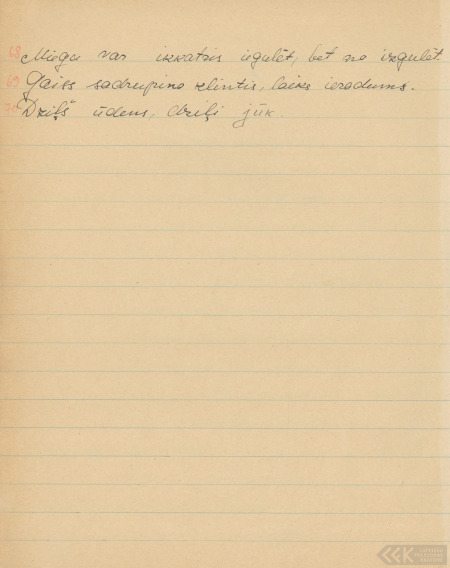 68 Miegu var ikkatris iegulēt, bet ne izgulēt.
69 Gaiss sadrupina klintis, laiks ieradums.
70 Dziļš ūdens, dziļi jūk.